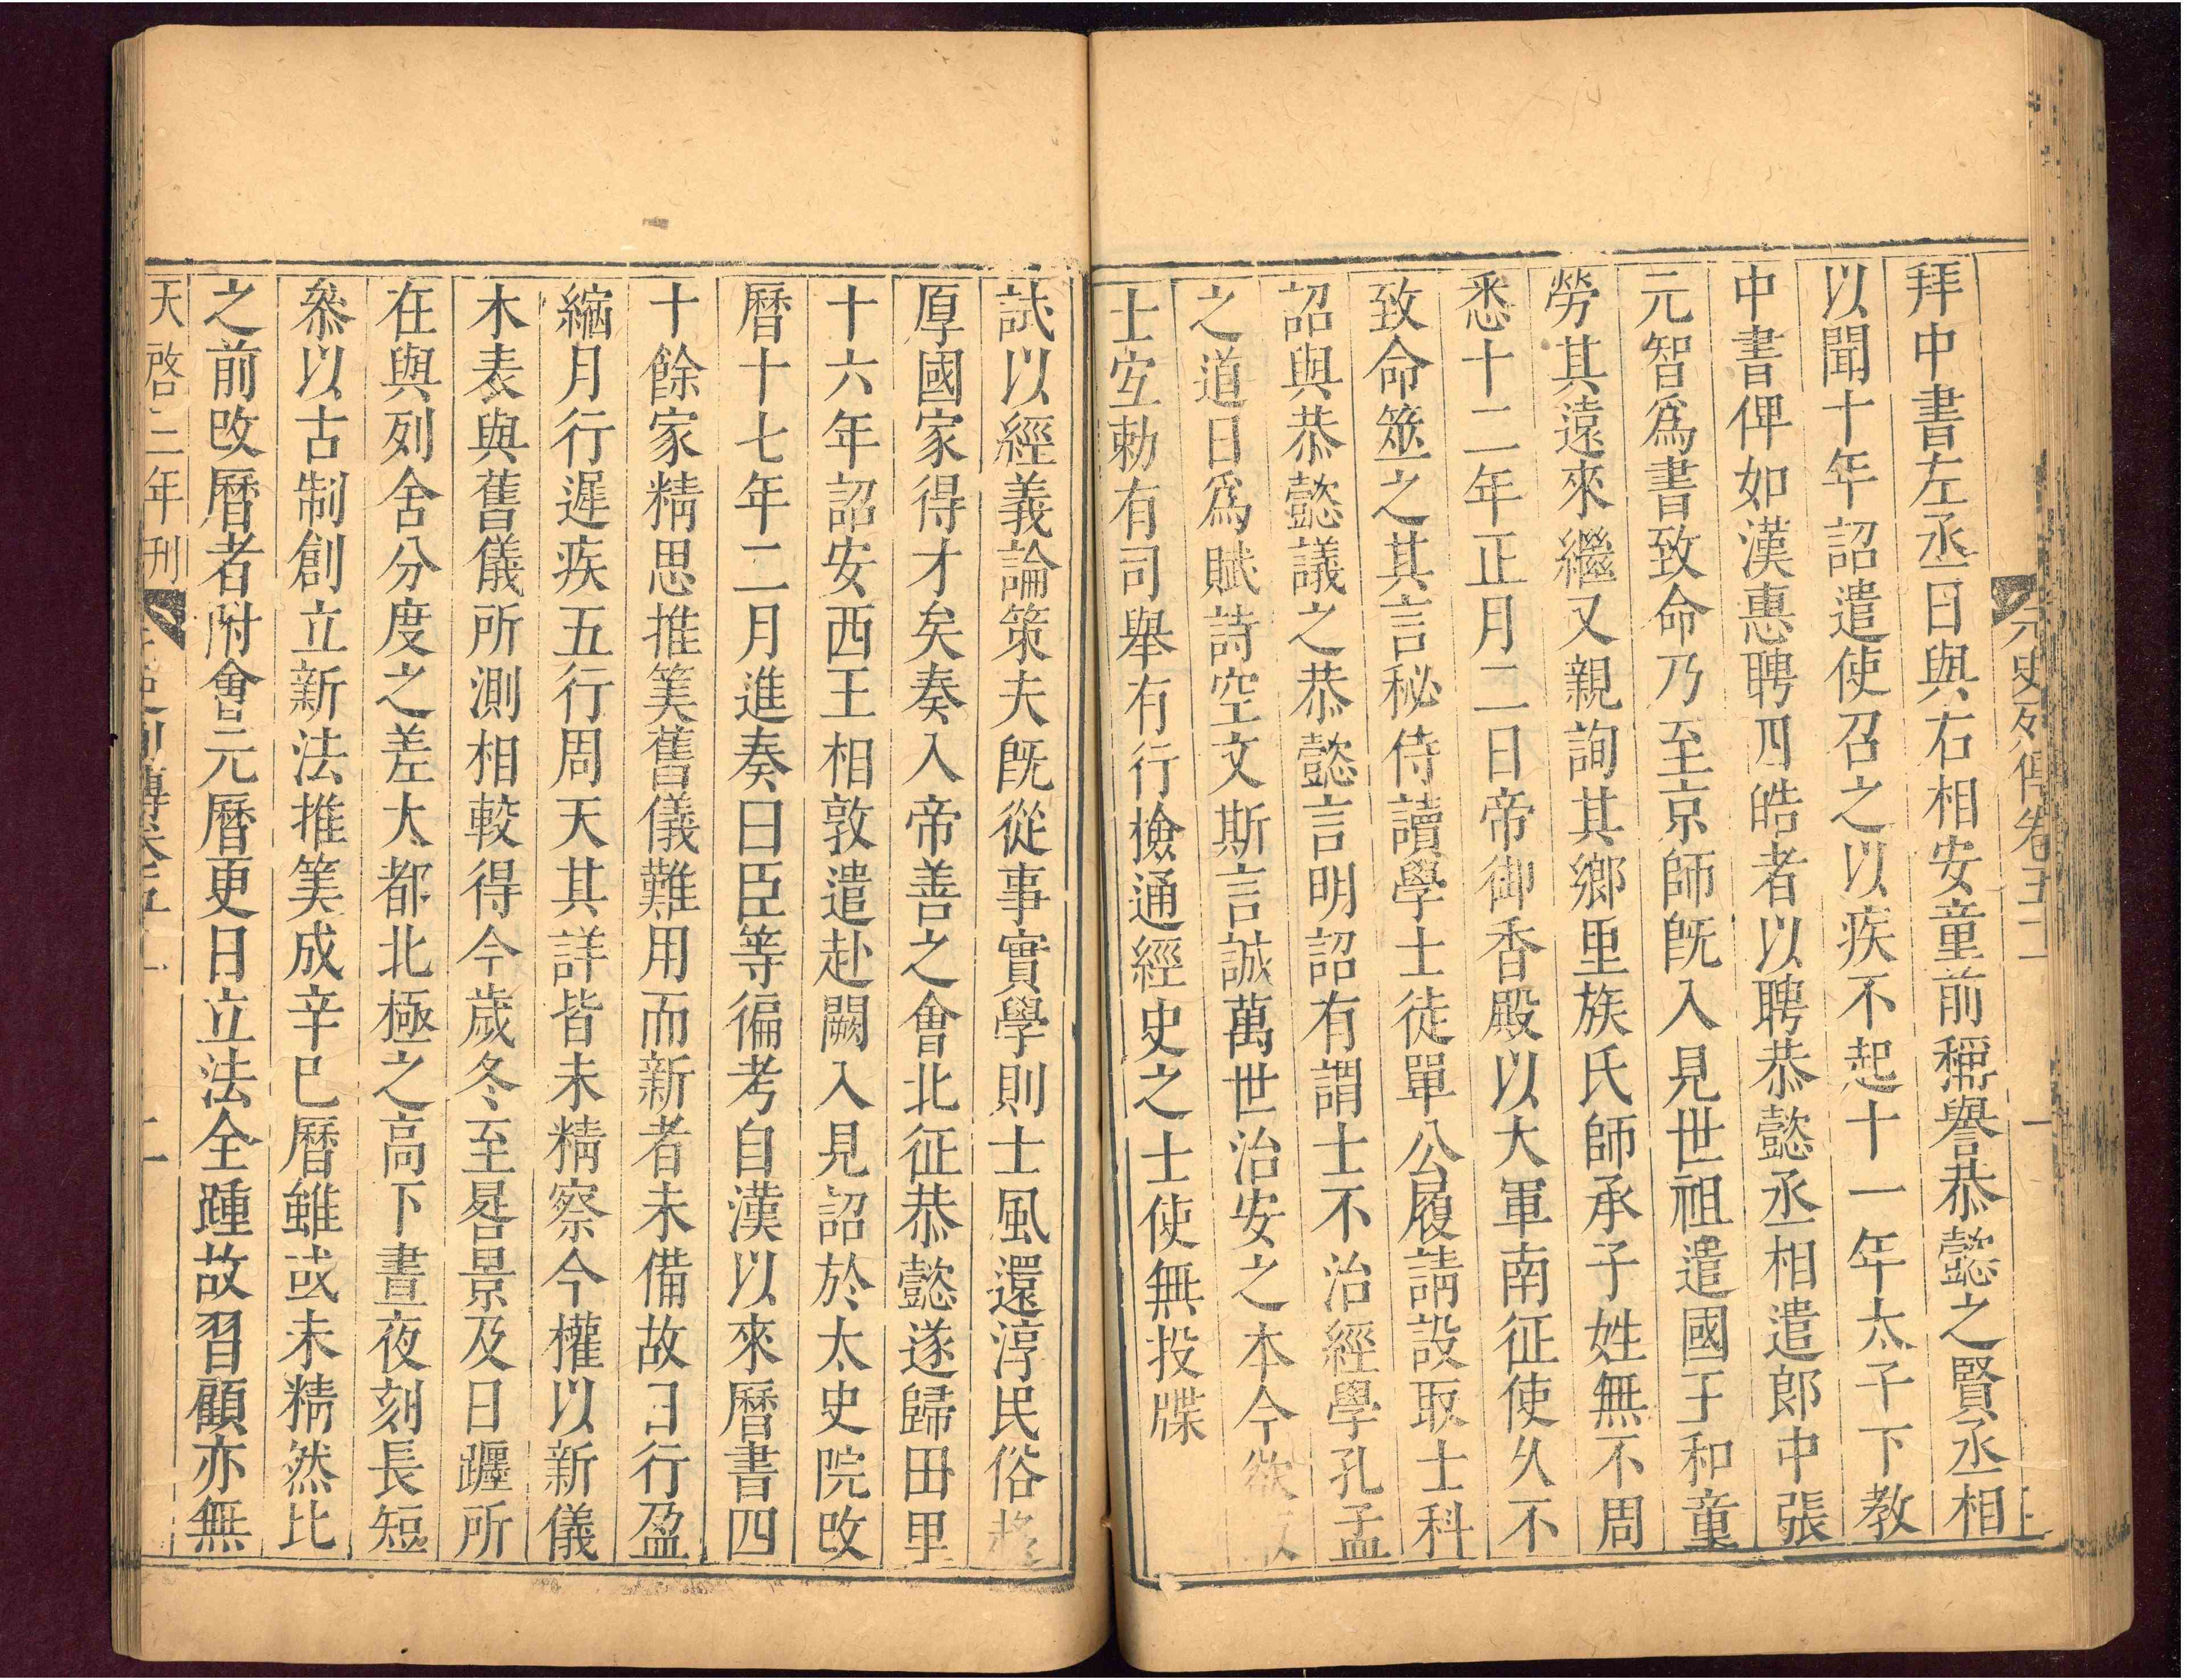 元史列傳卷五十一
一
拜中書左丞日與右相安童前稱譽恭懿之賢丞相
以聞十年詔遣使召之以疾不起十一年太子下教
中書俾如漢惠聘四皓者以聘恭懿丞相遣郎中張
元智爲書致命乃至京師旣入見世祖遣國王和童
勞其遠來繼又親詢其鄉里族氏師承子姓無不周
悉十二年正月二日帝御香殿以大軍南征使久不
致命筮之其言秘侍讀學士徒單公履請設取士科
詔與恭懿議之恭懿言明詔有謂士不治經學孔孟
之道日爲賦詩空文斯言誠萬世治安之本今欲取
士宜勅有司舉有行檢通經史之士使無投牒
試以經義論策夫旣從事實學則士風還淳民俗
厚國家得才矣奏入帝善之會北征恭懿遂歸田里
十六年詔安西王相敦遣赴闕入見詔於太史院改
曆十七年二月進奏曰臣等徧考自漢以來曆書四
十餘家精思推筭舊儀難用而新者未備故日行盈
縮月行遲疾五行周天其詳皆未精察今權以新儀
木表與舊儀所測相較得今歲冬至晷景及日躔所
在與列舍分度之差大都北極之高下晝夜刻長短
叅以古制創立新法推筭成辛巳曆雖或未精然比
之前改曆者附會元曆更日立法全踵故習顧亦無
天啓三年刊
列傳卷五十一
二